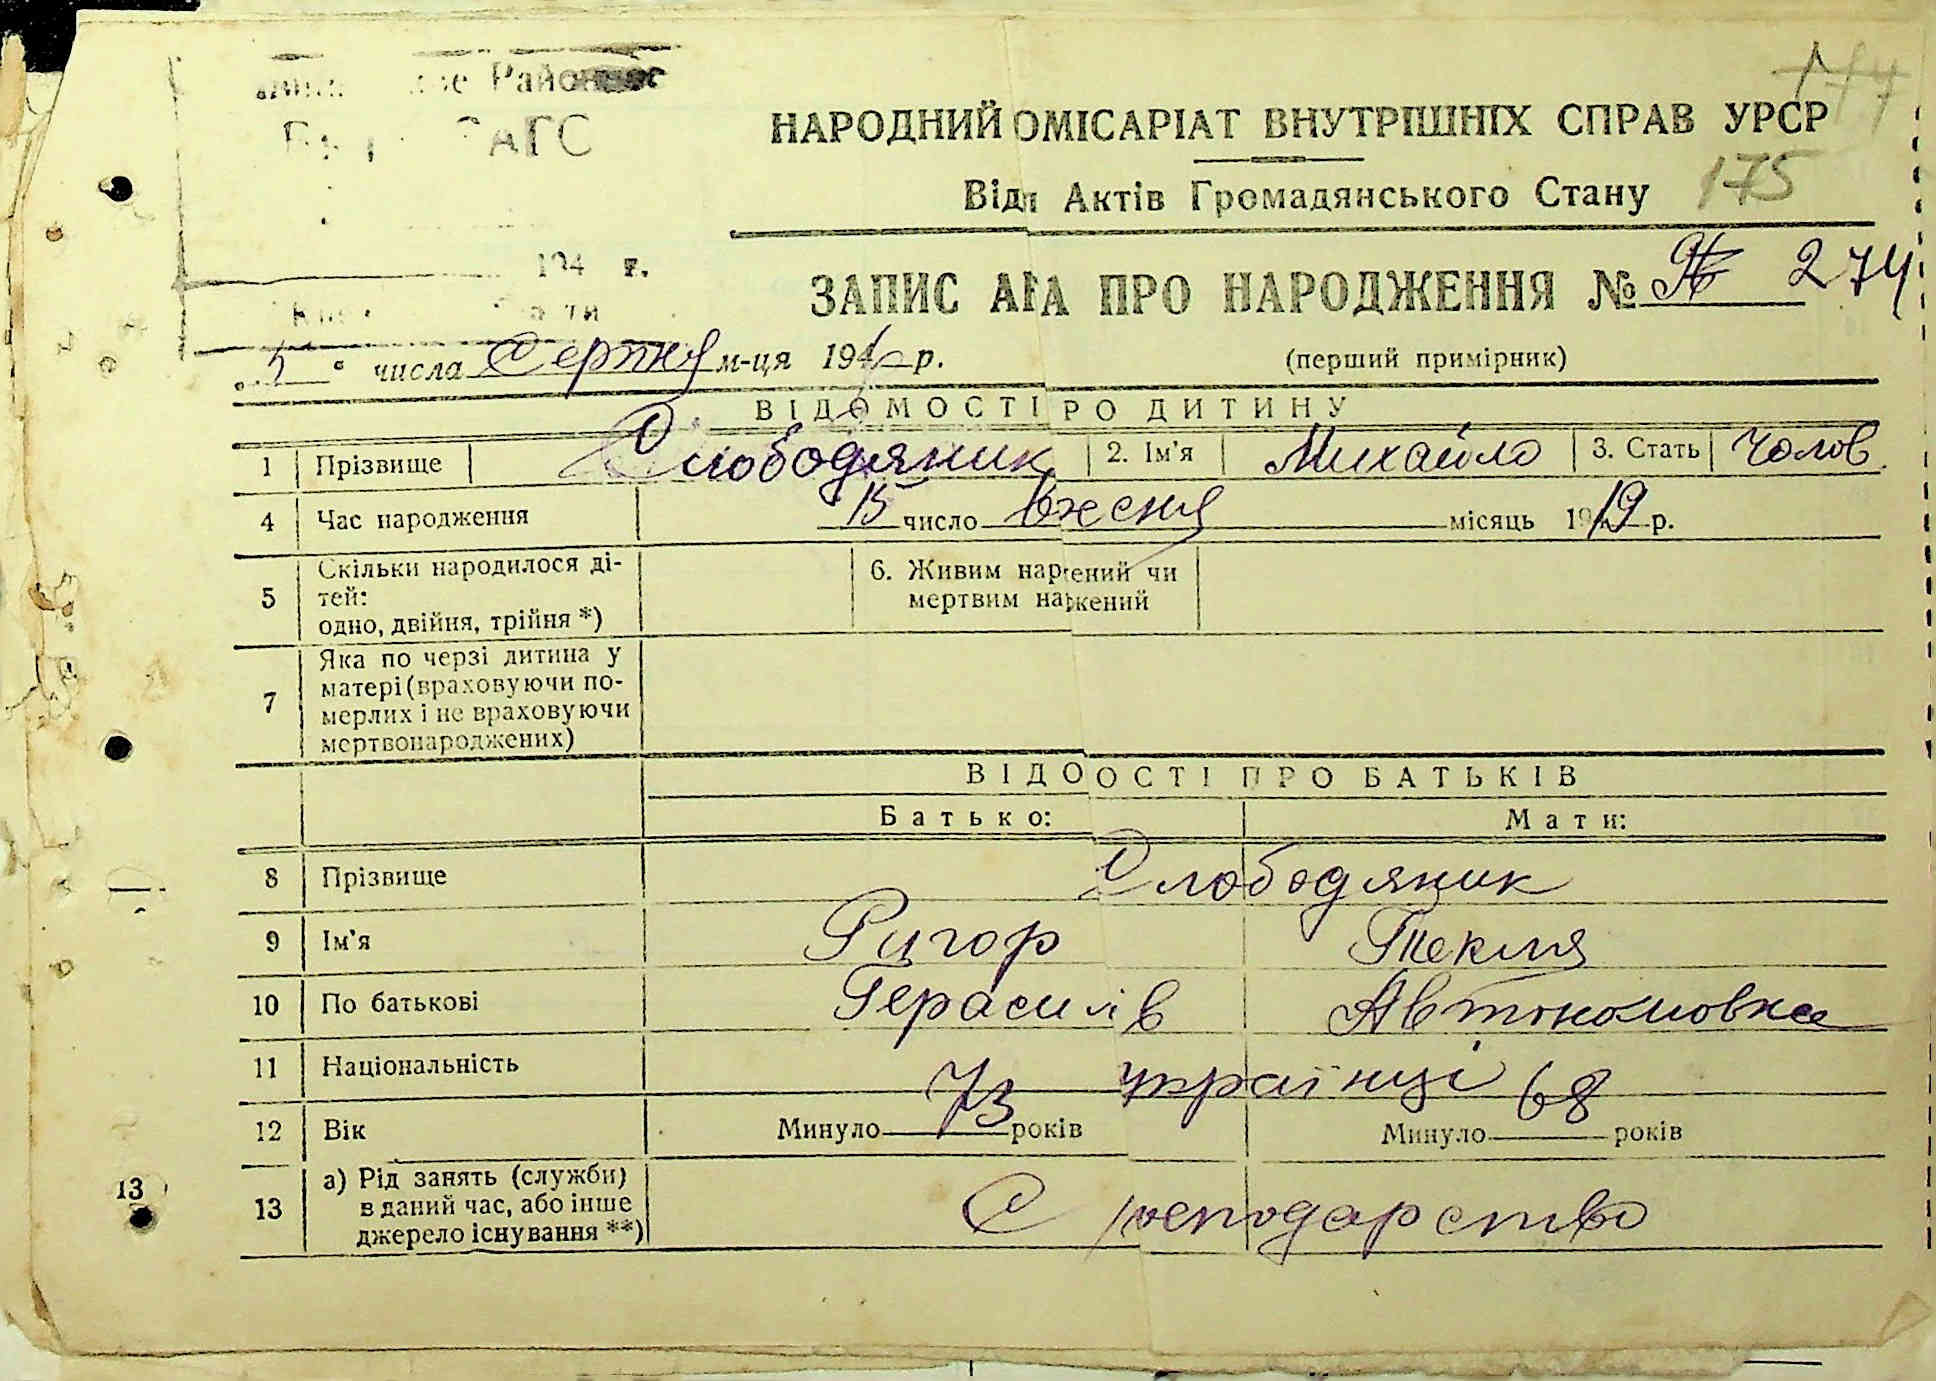 Районне
ЗАГС
174
НАРОДНИЙ ОМІСАРІАТ ВНУТРІШНІХ СПРАВ УРСР
175
Відл Актів Громадянського Стану
194 г.
ЗАПИС АКА ПРО НАРОДЖЕННЯ № 274
(перший примірник)
"5" числа Серпня м-ця 194 р.
ВІДОМОСТІ РО ДИТИНУ
1 Прізвище Слободяник 2. Ім'я Михайло 3. Стать Чолов
4 Час народження 15 число Вжесня місяць 1919 р.
5 Скільки народилося ді-
тей:
одно, двійня, трійня *)
6. Живим нарений чи
мертвим нажений
7 Яка по черзі дитина у
матері (враховуючи по-
мерлих і не враховуючи
мертвонароджених)
ВІДООСТІ ПРО БАТЬКІВ
Батько: Мати:
8 Прізвище Слободяник
9 Ім'я Ригор Текля
10 По батькові Герасимів Автономовна
11 Національність українці
12 Вік Минуло 73 років Минуло 68 років
13 а) Рід занять (служби)
в даний час, або інше
джерело існування **)
С господарство
13